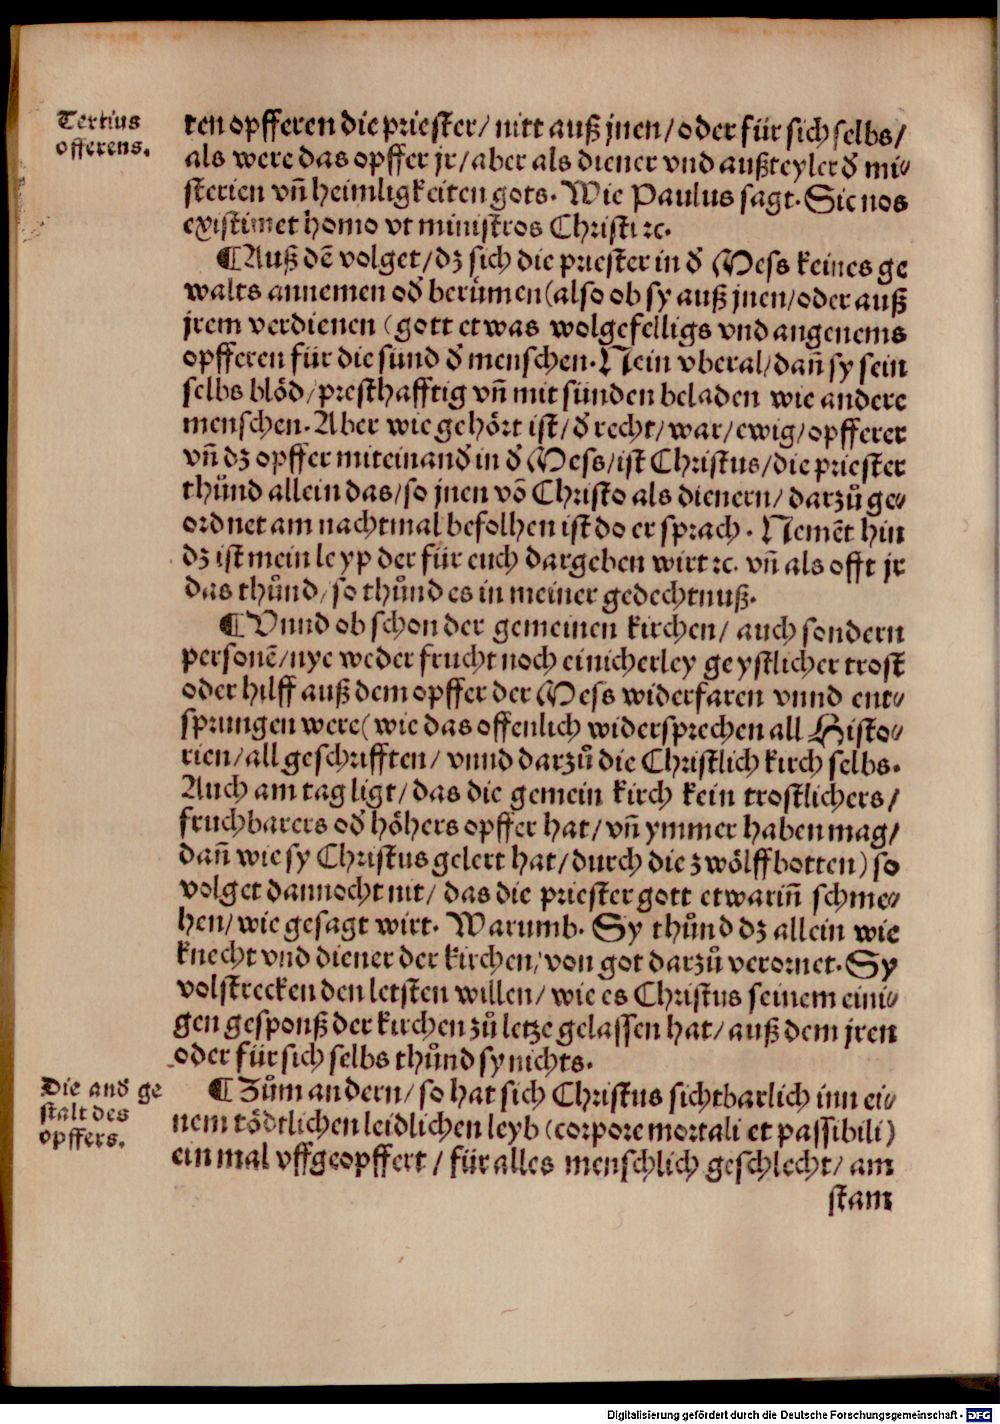 Tertius
offerens.
ten opfferen die priester/ nitt auß jnen/ oder für sich selbs/
als were das opffer jr/ aber als diener vnd außteyler đ mi⸗
sterien vñ heimligkeiten gots. Wie Paulus sagt. Sic nos
existimet homo vt ministros Christi ⁊c.
¶Auß dē volget/ dz sich die priester in đ Mess keines ge
walts annemen ođ berümen (also ob sy auß jnen/ oder auß
jrem verdienen (gott etwas wolgefelligs vnd angenems
opfferen für die sünd đ menschen. Nein vberal/ dañ sy sein
selbs blöd/ presthafftig vñ mit sünden beladen wie andere
menschen. Aber wie gehört ist/ đ recht/ war/ ewig/ opfferer
vñ dz opffer miteinanđ in đ Mess/ ist Christus/ die priester
thůnd allein das/ so jnen vō Christo als dienern/ darzů ge⸗
ordnet am nachtmal befolhen ist do er sprach. Nemēt hin
dz ist mein leyp der für euch dargeben wirt ⁊c. vñ als offt jr
das thůnd/ so thůnd es in meiner gedechtnuß.
¶Vnnd ob schon der gemeinen kirchen/ auch sondern
personē/ nye weder frucht noch einicherley geystlicher trost
oder hilff auß dem opffer der Mess widerfaren vnnd ent⸗
sprungen were (wie das offenlich widersprechen all Histo⸗
rien/ all geschrifften/ vnnd darzů die Christlich kirch selbs.
Auch am tag ligt/ das die gemein kirch kein trostlichers/
fruchbarers ođ höhers opffer hat/ vñ ymmer haben mag/
dañ wie sy Christus gelert hat/ durch die zwölffbotten) so
volget dannocht nit/ das die priester gott etwariñ schme⸗
hen/ wie gesagt wirt. Warumb. Sy thůnd dz allein wie
knecht vnd diener der kirchen/ von got darzů verornet. Sy
volstrecken den letsten willen/ wie es Christus seinem eini⸗
gen gesponß der kirchen zů letze gelassen hat/ auß dem jren
oder für sich selbs thůnd sy nichts.
Die anđ ge
stalt des
opffers.
¶Zům andern/ so hat sich Christus sichtbarlich inn ei⸗
nem tödtlichen leidlichen leyb (corpore mortali et passibili)
ein mal vffgeopffert/ für alles menschlich geschlecht/ am
stam
Digitalisierung gefördert durch die Deutsche Forschungsgemeinschaft - DFG